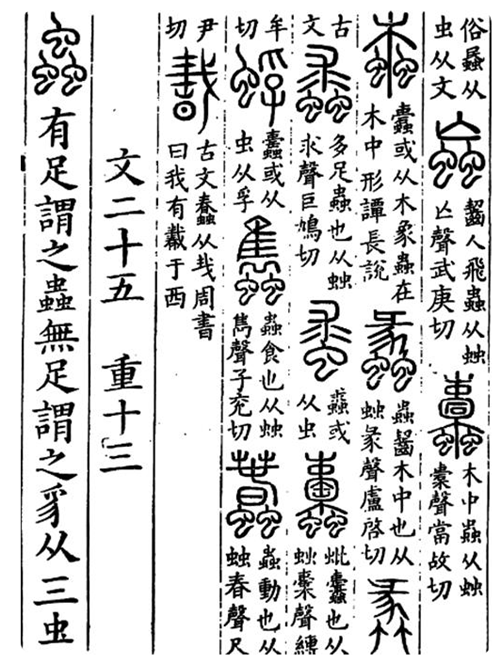 俗蟁从虫从文 蝱 齧人飛蟲从䖵亡聲武庚切 蠹 木中蟲从䖵橐聲當故切
螙 蠹或从木象蟲在木中形譚長說 蠡 蟲齧木中也从䖵彖聲盧啓切
古文 多足蟲也从䖵求聲巨鳩切 蛷 或从虫 也从䖵橐聲縛
牟切 蜉 或从虫从孚 蟲食也从䖵雋聲子兖切 蠢 蟲動也从䖵春聲尺
尹切 古文蠢从𢦏周書曰我有于西
文二十五 重十三
蟲 有足謂之蟲無足謂之豸从三虫